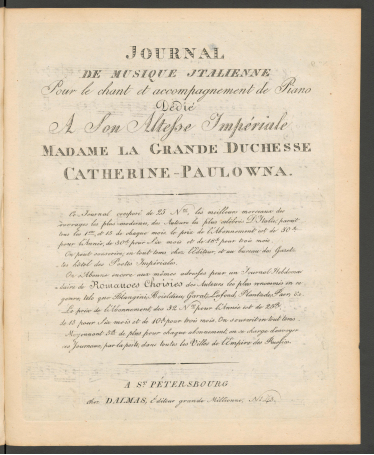 JOURNAL
DE MUSIQUE JTALIENNE
Pour le chant et accompagnement de Piano
Dédié
A Son Altesse Impériale
MADAME LA GRANDE DUCHESSE
CATHERINE-PAULOWNA.
Ce Journal composé de 25 Nos, les meilleurs morceaux des
ouvrages les plus modernes, des Auteurs les plus célèbres D'Italie, parait
tous les 1ers et 15 de chaque mois le prix de l'Abonnement est de 30
pour l'Année, de 20 pour Six mois et de pour trois mois.
On peut souscrire, en tout tems chez l'Editeur, et au bureau des Gazettes
hôtel des Postes Impériales.
On s'Abonne encore aux mêmes adresses pour un Journal Hebdoma-
daire de Romances Choisies des Auteurs les plus renommés en ce
genre, tels que Blangini, Boieldieu, Garat, Lafond, Plantade, Paer, &c.
Le prix de l'Abonnement, des 52 Nos pour l'Année est de
de 15 pour Six mois et de 10 pour trois mois. On souscrit en tout tems.
Moyennant de plus pour chaque abonnement, on se charge d'envoyer
ce Journaux, par la poste, dans toutes les Villes de l'Empire
A ST PÉTERSBOURG
chez DALMAS, Editeur grande Millionne, No